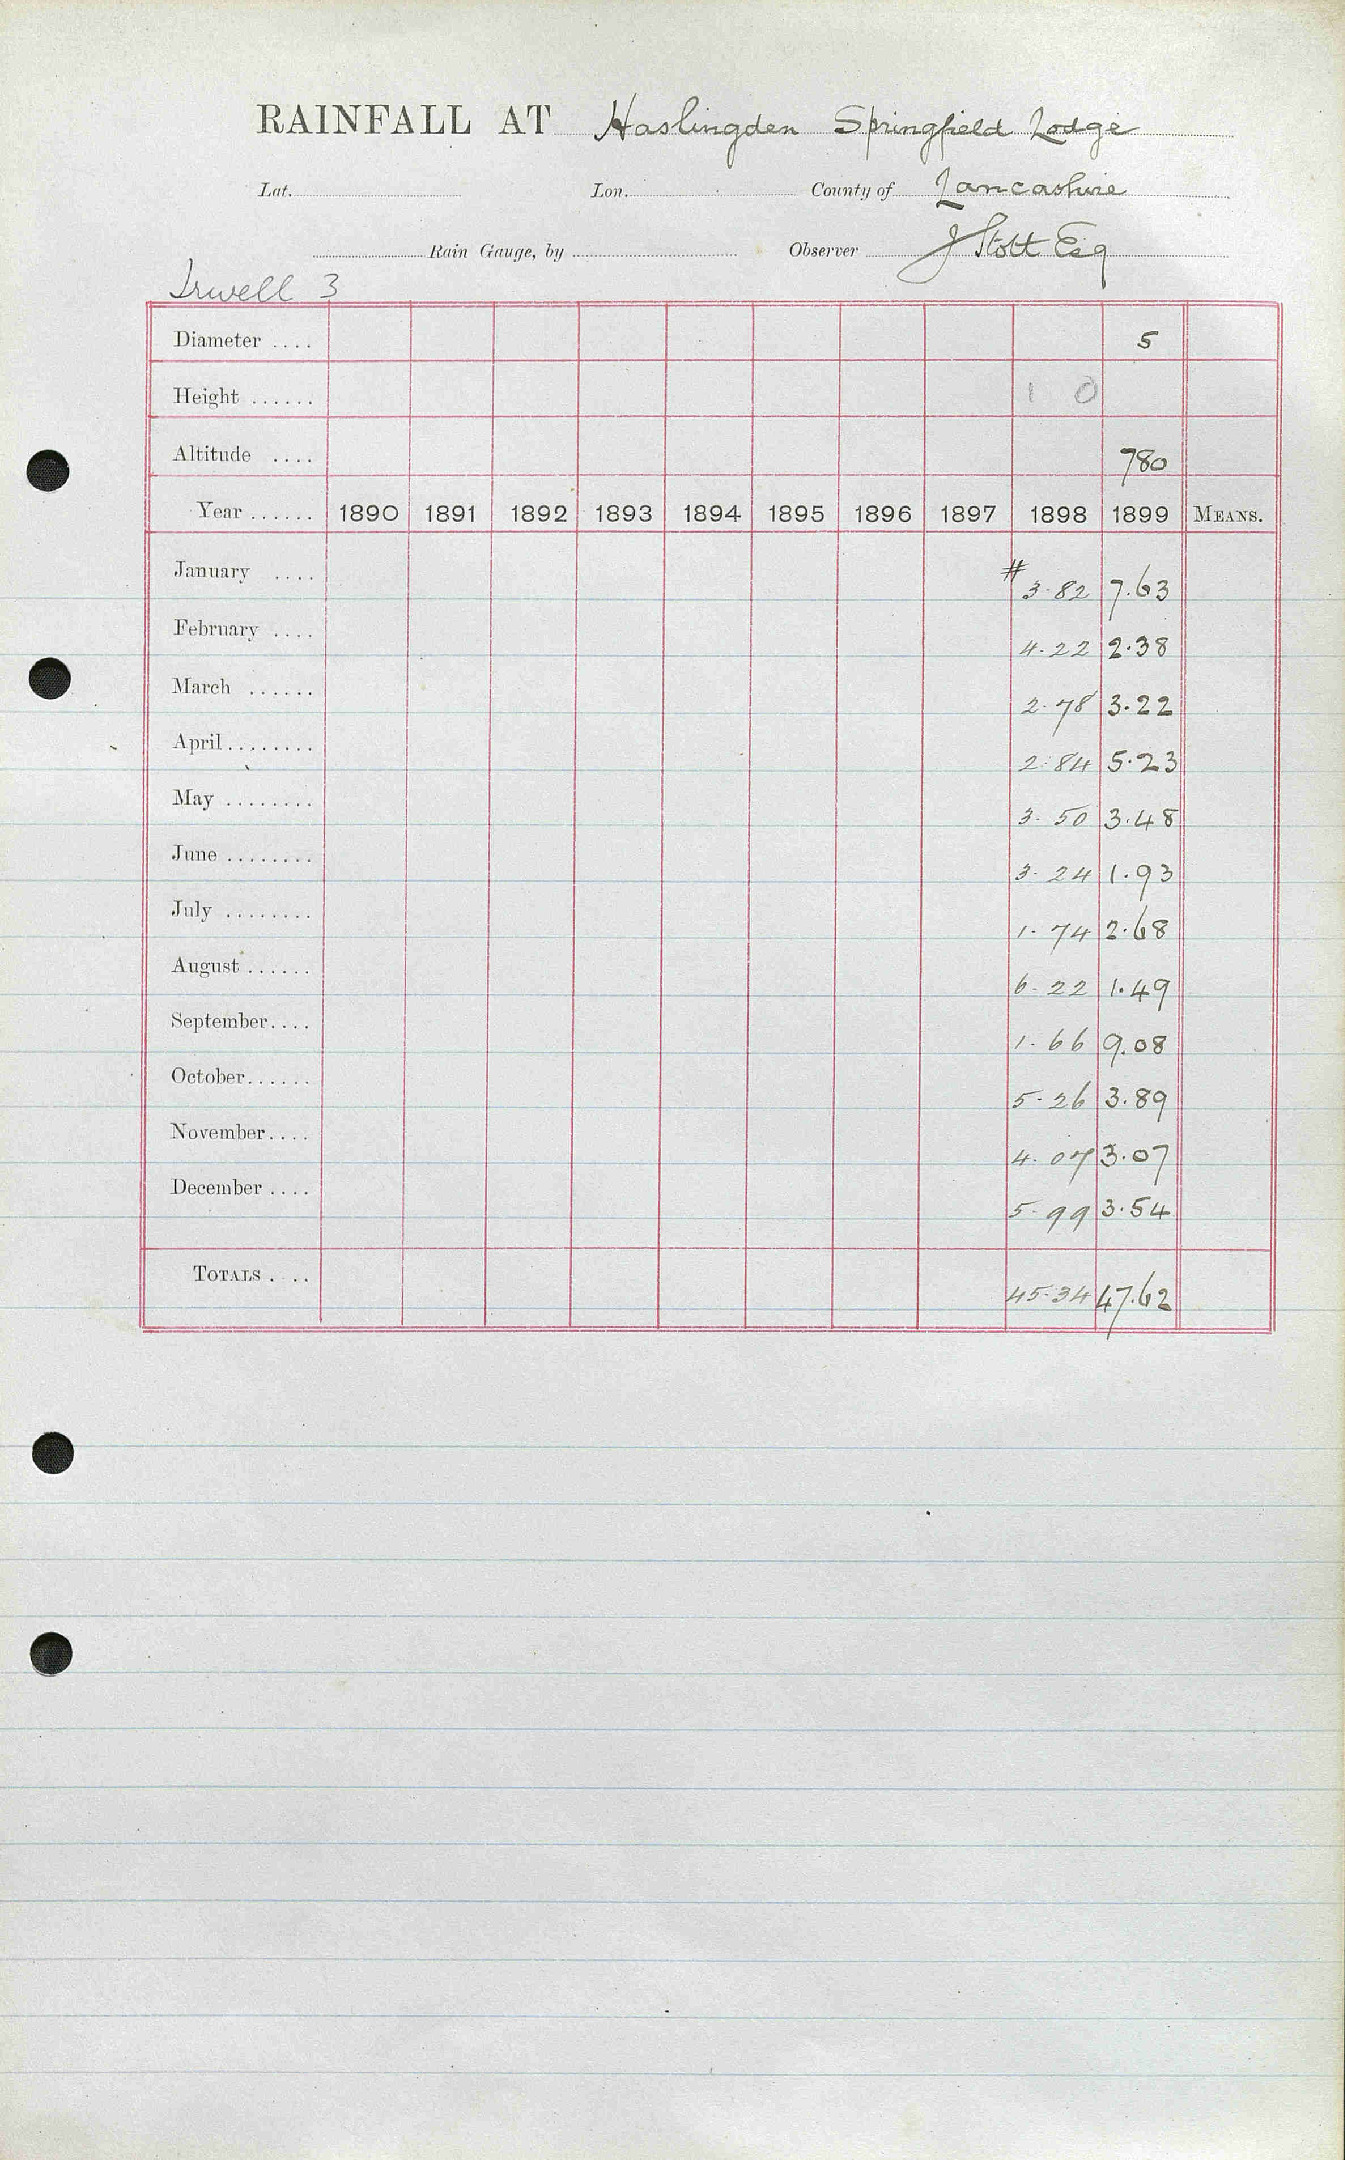 RAINFALL AT Haslingden Springfield Lodge
Lat. Lon. County of Lancashire
Rain Gauge, by Observer J Stott Esq
Irwell 3
Diameter .... 5
Height ...... 1 0
Altitude .... 780
Year ...... 1890 1891 1892 1893 1894 1895 1896 1897 1898 1899 MEANS.
January .... # 3.82 7.63
February .... 4.22 2.38
March ...... 2.78 3.22
April ........ 2.84 5.23
May ........ 3.50 3.48
June ........ 3.24 1.93
July ........ 1.74 2.68
August ...... 6.22 1.49
September .... 1.66 9.08
October ...... 5.26 3.89
November .... 4.07 3.07
December .... 5.99 3.54
TOTALS .... 45.34 47.62